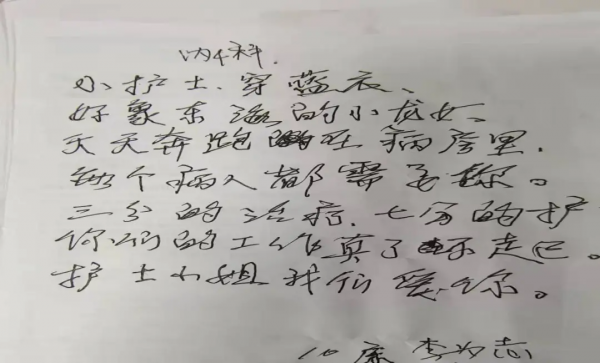 内4科.
小护士.穿蓝衣、
好象东海的小龙女、
天天奔跑在病房里.
每个病人都需要你。
三分的治疗.七分的护
你们的工作真了不起。
护士小姐我们爱你。
10床 李为志